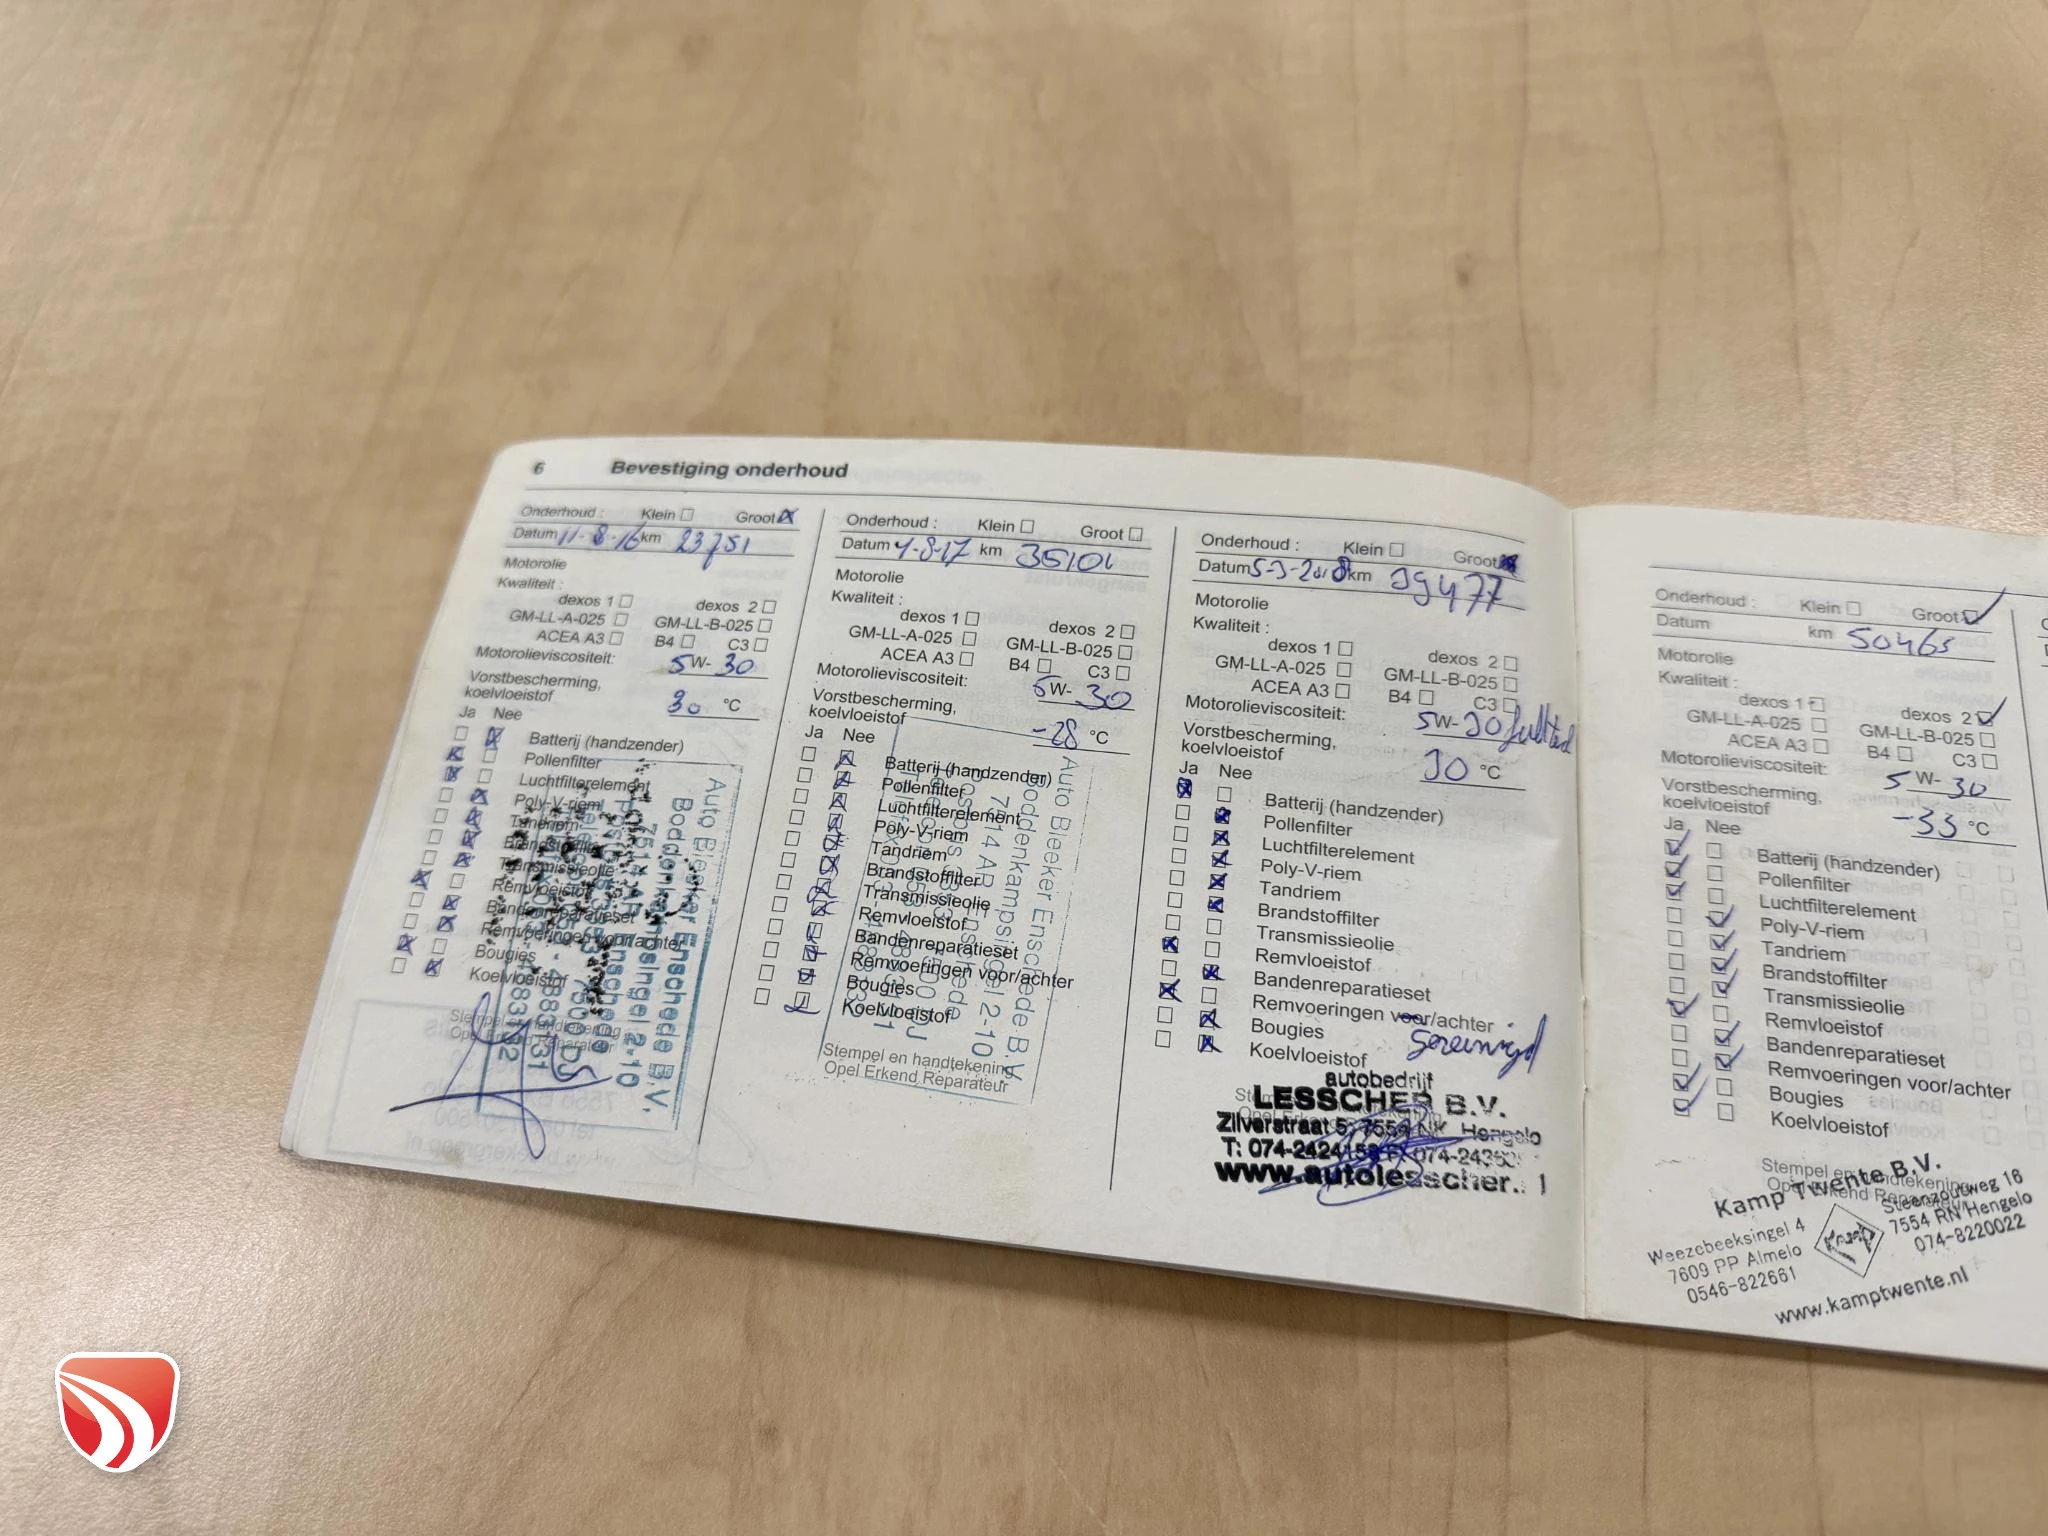 6 Bevestiging onderhoud
Onderhoud : Klein Groot
Datum 11-8-16 km 23751
Motorolie
Kwaliteit :
dexos 1 dexos 2
GM-LL-A-025 GM-LL-B-025
ACEA A3 B4 C3
Motorolieviscositeit: 5W-30
Vorstbescherming,
koelvloeistof 30 °C
Ja Nee
Batterij (handzender)
Pollenfilter
Luchtfilterelement
Poly-V-riem
Tandriem
Brandstoffilter
Transmissieolie
Remvloeistof
Bandenreparatieset
Remvoeringen voor/achter
Bougies
Koelvloeistof
Stempel en handtekening
Opel Erkend Reparateur
Auto Bleeker Enschede B.V.
Boddenkampsingel 2-10
7514 AR Enschede
Onderhoud : Klein Groot
Datum 4-8-17 km 35101
Motorolie
Kwaliteit :
dexos 1 dexos 2
GM-LL-A-025 GM-LL-B-025
ACEA A3 B4 C3
Motorolieviscositeit: 5W-30
Vorstbescherming,
koelvloeistof -28 °C
Ja Nee
Batterij (handzender)
Pollenfilter
Luchtfilterelement
Poly-V-riem
Tandriem
Brandstoffilter
Transmissieolie
Remvloeistof
Bandenreparatieset
Remvoeringen voor/achter
Bougies
Koelvloeistof
Stempel en handtekening
Opel Erkend Reparateur
Auto Bleeker Enschede B.V.
Boddenkampsingel 2-10
7514 AR Enschede
Onderhoud : Klein Groot
Datum 5-3-2018 km 39477
Motorolie
Kwaliteit :
dexos 1 dexos 2
GM-LL-A-025 GM-LL-B-025
ACEA A3 B4 C3
Motorolieviscositeit: 5W-30
Vorstbescherming,
koelvloeistof 30 °C
Ja Nee
Batterij (handzender)
Pollenfilter
Luchtfilterelement
Poly-V-riem
Tandriem
Brandstoffilter
Transmissieolie
Remvloeistof
Bandenreparatieset
Remvoeringen voor/achter
Bougies gereinigd
Koelvloeistof
autobedrijf
LESSCHER B.V.
Zilverstraat 5, 7554 NK Hengelo
T: 074-2424158
www.autolesscher.
Onderhoud : Klein Groot
Datum km 50465
Motorolie
Kwaliteit :
dexos 1 dexos 2
GM-LL-A-025 GM-LL-B-025
ACEA A3 B4 C3
Motorolieviscositeit: 5W-30
Vorstbescherming,
koelvloeistof -33 °C
Ja Nee
Batterij (handzender)
Pollenfilter
Luchtfilterelement
Poly-V-riem
Tandriem
Brandstoffilter
Transmissieolie
Remvloeistof
Bandenreparatieset
Remvoeringen voor/achter
Bougies
Koelvloeistof
Stempel en handtekening
Opel Erkend Reparateur
Kamp Twente B.V.
Weezebeeksingel 4
7609 PP Almelo
0546-822661
Steenzoutweg 16
7554 RN Hengelo
074-8220022
www.kamptwente.nl